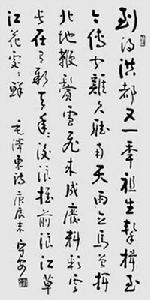 到得洪都又一年祖生擊楫至
今傳聞雞久聽南天雨立馬曾揮
北地鞭鬢雪飛來成廢料彩雲
長在有新天年年後浪推前浪江草
江花處處鮮 毛澤東詩